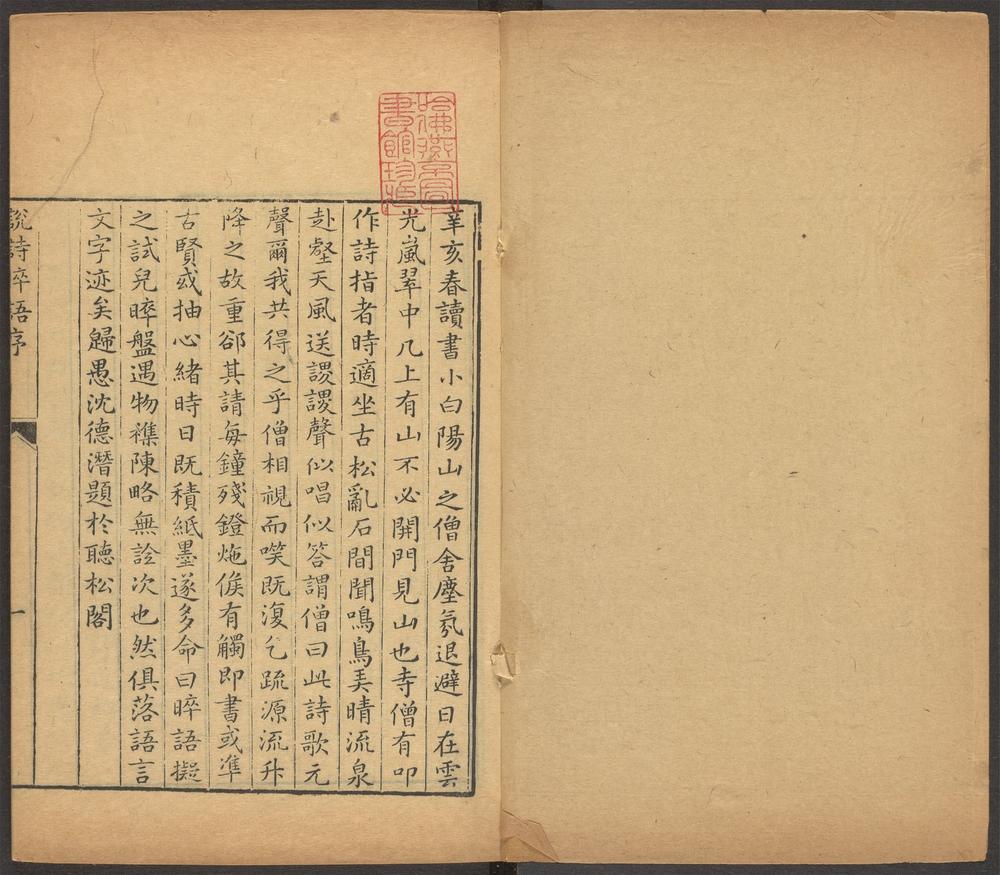 哈佛燕京圖
書館珍藏
辛亥春讀書小白陽山之僧舍塵氛退避日在雲
光嵐翠中几上有山不必開門見山也寺僧有叩
作詩指者時適坐古松亂石間聞鳴鳥弄晴流泉
赴壑天風送謖謖聲似唱似答謂僧曰此詩歌元
聲爾我共得之乎僧相視而笑既復乞疏源流升
降之故重郤其請每鐘殘鐙炧候有觸即書或準
古賢或抽心緒時日既積紙墨遂多命曰晬語擬
之試兒晬盤遇物襍陳略無詮次也然俱落語言
文字迹矣歸愚沈德潛題於聽松閣
說詩晬語序
一